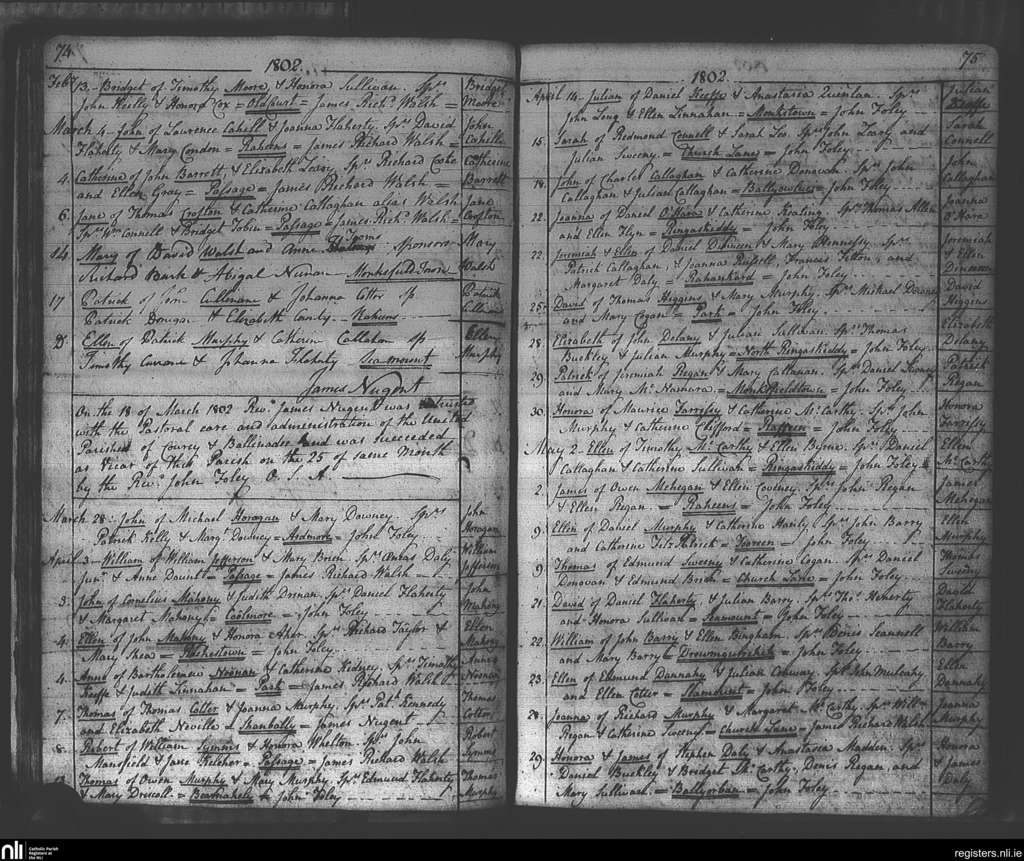 74
1802
Feby 13. Bridget of Timothy Moore & Honora Sullivan. Sprs
John Reilly & Honora Cox = Old Court = James Richd Walsh =
Bridget
Moore
March 4 - John of Laurence Cahill & Joanna Flaherty. Sprs David
Flaherty & Mary Condon = Raheens = James Richard Walsh =
John
Cahill
4. Catherine of John Barrett, & Elizabeth Leary Sprs Richard Cooke
and Ellen Gray = Passage = James Richard Walsh =
Catherine
Barrett
6. Jane of Thomas Crofton & Catherine Callaghan alias Walsh
Sprs Wm Connell & Bridget Tobin = Passage = James Richd Walsh =
Jane
Crofton
14 Mary of David Walsh and Anne Tyoms sponsors
Richard Burk & Abigal Nunan Monksfield Town
Mary
Walsh
17 Patrick of Cullinane & Johanna Cotter Sp
Patrick Dongan & Elizabeth Canty - Raheens
Patrick
Ellen of Patrick Murphy & Catherin Callahan sp
Timothy & Johanna Flaherty Seamount
Ellen
Murphy
James Nugent
On the 18 of March 1802 Revd James Nugent was
with the Pastoral care and administration of the United
Parishes of Courcy & Ballinadee and was succeeded
as Vicar of this Parish on the 25 of same month
by the Revd John Foley O. S. A.
March 28. John of Michael Horagan & Mary Dawney. Sprs
Patrick Kelly & Margt Downey = Ardmore = John Foley
John
Horagan
April 3 - William of William Jefferson & Mary Brien Sprs Aneas Daly
Junr & Anne Daunt = Passage = James Richard Walsh =
William
Jefferson
3. John of Cornelius Mahony & Judith Drinan. Sprs Daniel Flaherty
& Margaret Mahony = Coolmore = John Foley
John
Mahony
4. Ellen of John Mahony & Honora Aher. Sprs Richard Taylor &
Mary Shea = Hackestown = John Foley
Ellen
Mahony
4. Anne of Bartholemew Noonan & Catherine Kidney. Sprs Timothy
Keeffe & Judith Linnahan = Park = James Richard Walsh
Anne
Noonan
7. Thomas of Thomas Cotter & Joanna Murphy. Sprs Patk Kennedy
and Elizabeth Neville = Shanbally = James Nugent
Thomas
Cotter
8. Robert of William Symms & Honora Whelton. Sprs John
Mansfield & Jane Kelcher = Passage = James Richard Walsh
Robert
Symms
Thomas of Owen Murphy & Mary Murphy. Sprs Edmund Flaherty
& Mary Driscoll = Bearnahely = John Foley
Thomas
Murphy
75
1802
April 14 - Julian of Daniel Keeffe & Anastasia Quinlan. Sprs
John Long & Ellen Linnahan = Monkstown = John Foley
Julian
Keeffe
15. Sarah of Redmond Connell & Sarah Leo. Sprs John Leary and
Julian Sweeny = Church Lane = John Foley
Sarah
Connell
18. John of Charles Callaghan & Catherine Donovan. Sprs John
Callaghan & Julian Callaghan = Ballyowlues = John Foley
John
Callaghan
22. Joanna of Daniel O'Hara & Catherine Keating. Sprs Thomas Allen
and Ellen Flyn = Ringaskiddy = John Foley
Joanna
O'Hara
22. Jeremiah & Ellen of Daniel Dinneen & Mary Hennessy. Sprs
Patrick Callaghan, & Joanna Russell, Francis Fitton, and
Margaret Daly = Rahanisard = John Foley
Jeremiah
& Ellen
Dinneen
25. David of Thomas Higgins & Mary Murphy. Sprs Michael Dawney
and Mary Cogan = Park = John Foley
David
Higgins
28. Elizabeth of John Delany & Julian Sullivan. Sprs Thomas
Buckley & Julian Murphy = North Ringaskiddy = John Foley
Elizabeth
Delany
29. Patrick of Jeremiah Regan & Mary Callanan. Sprs Daniel Sweney
and Mary McNamara = Monksfieldtown = John Foley
Patrick
Regan
30. Honora of Maurice Farrissy & Catherine McCarthy. Sprs John
Murphy & Catherine Clifford = Raffeen = John Foley
Honora
Farrissy
May 2 - Ellen of Timothy McCarthy & Ellen Byrne. Sprs Daniel
Callaghan & Catherine Sullivan = Ringaskiddy = John Foley
Ellen
McCarthy
2. James of Owen Mehegan & Ellen Cooney. Sprs John Regan
& Ellen Regan = Raheens = John Foley
James
Mehegan
9. Ellen of Daniel Murphy & Catherine Hanly. Sprs John Barry
and Catherine Fitz Patrick = = John Foley
Ellen
Murphy
9. Thomas of Edmund Sweeny & Catherine Cogan. Sprs Daniel
Donovan & Edmund Brien = Church Lane = John Foley
Thomas
Sweeny
21. David of Daniel Flaherty, & Julian Barry. Sprs Thos Heherty
and Honora Sullivan = Seamount = John Foley
David
Flaherty
22. William of John Barry & Ellen Bingham. Sprs Denis Scannell
and Mary Barry = = John Foley
William
Barry
23. Ellen of Edmund Dannahy & Julian Conway. Sprs John Mulcahy
and Ellen Cotter = = John Foley
Ellen
Dannahy
28. Joanna of Richard Murphy & Margaret McCarthy. Sprs Willm
Regan & Catherine Sweeny = Church Lane = James Richard Walsh
Joanna
Murphy
29. Honora & James of Stephen Daly & Anastasia Madden. Sprs
Daniel Buckley & Bridget McCarthy, Denis Regan and
Mary Sullivan = Ballyorban = John Foley
Honora
& James
Daly
nli
Catholic Parish
Registers at
the NLI
registers.nli.ie